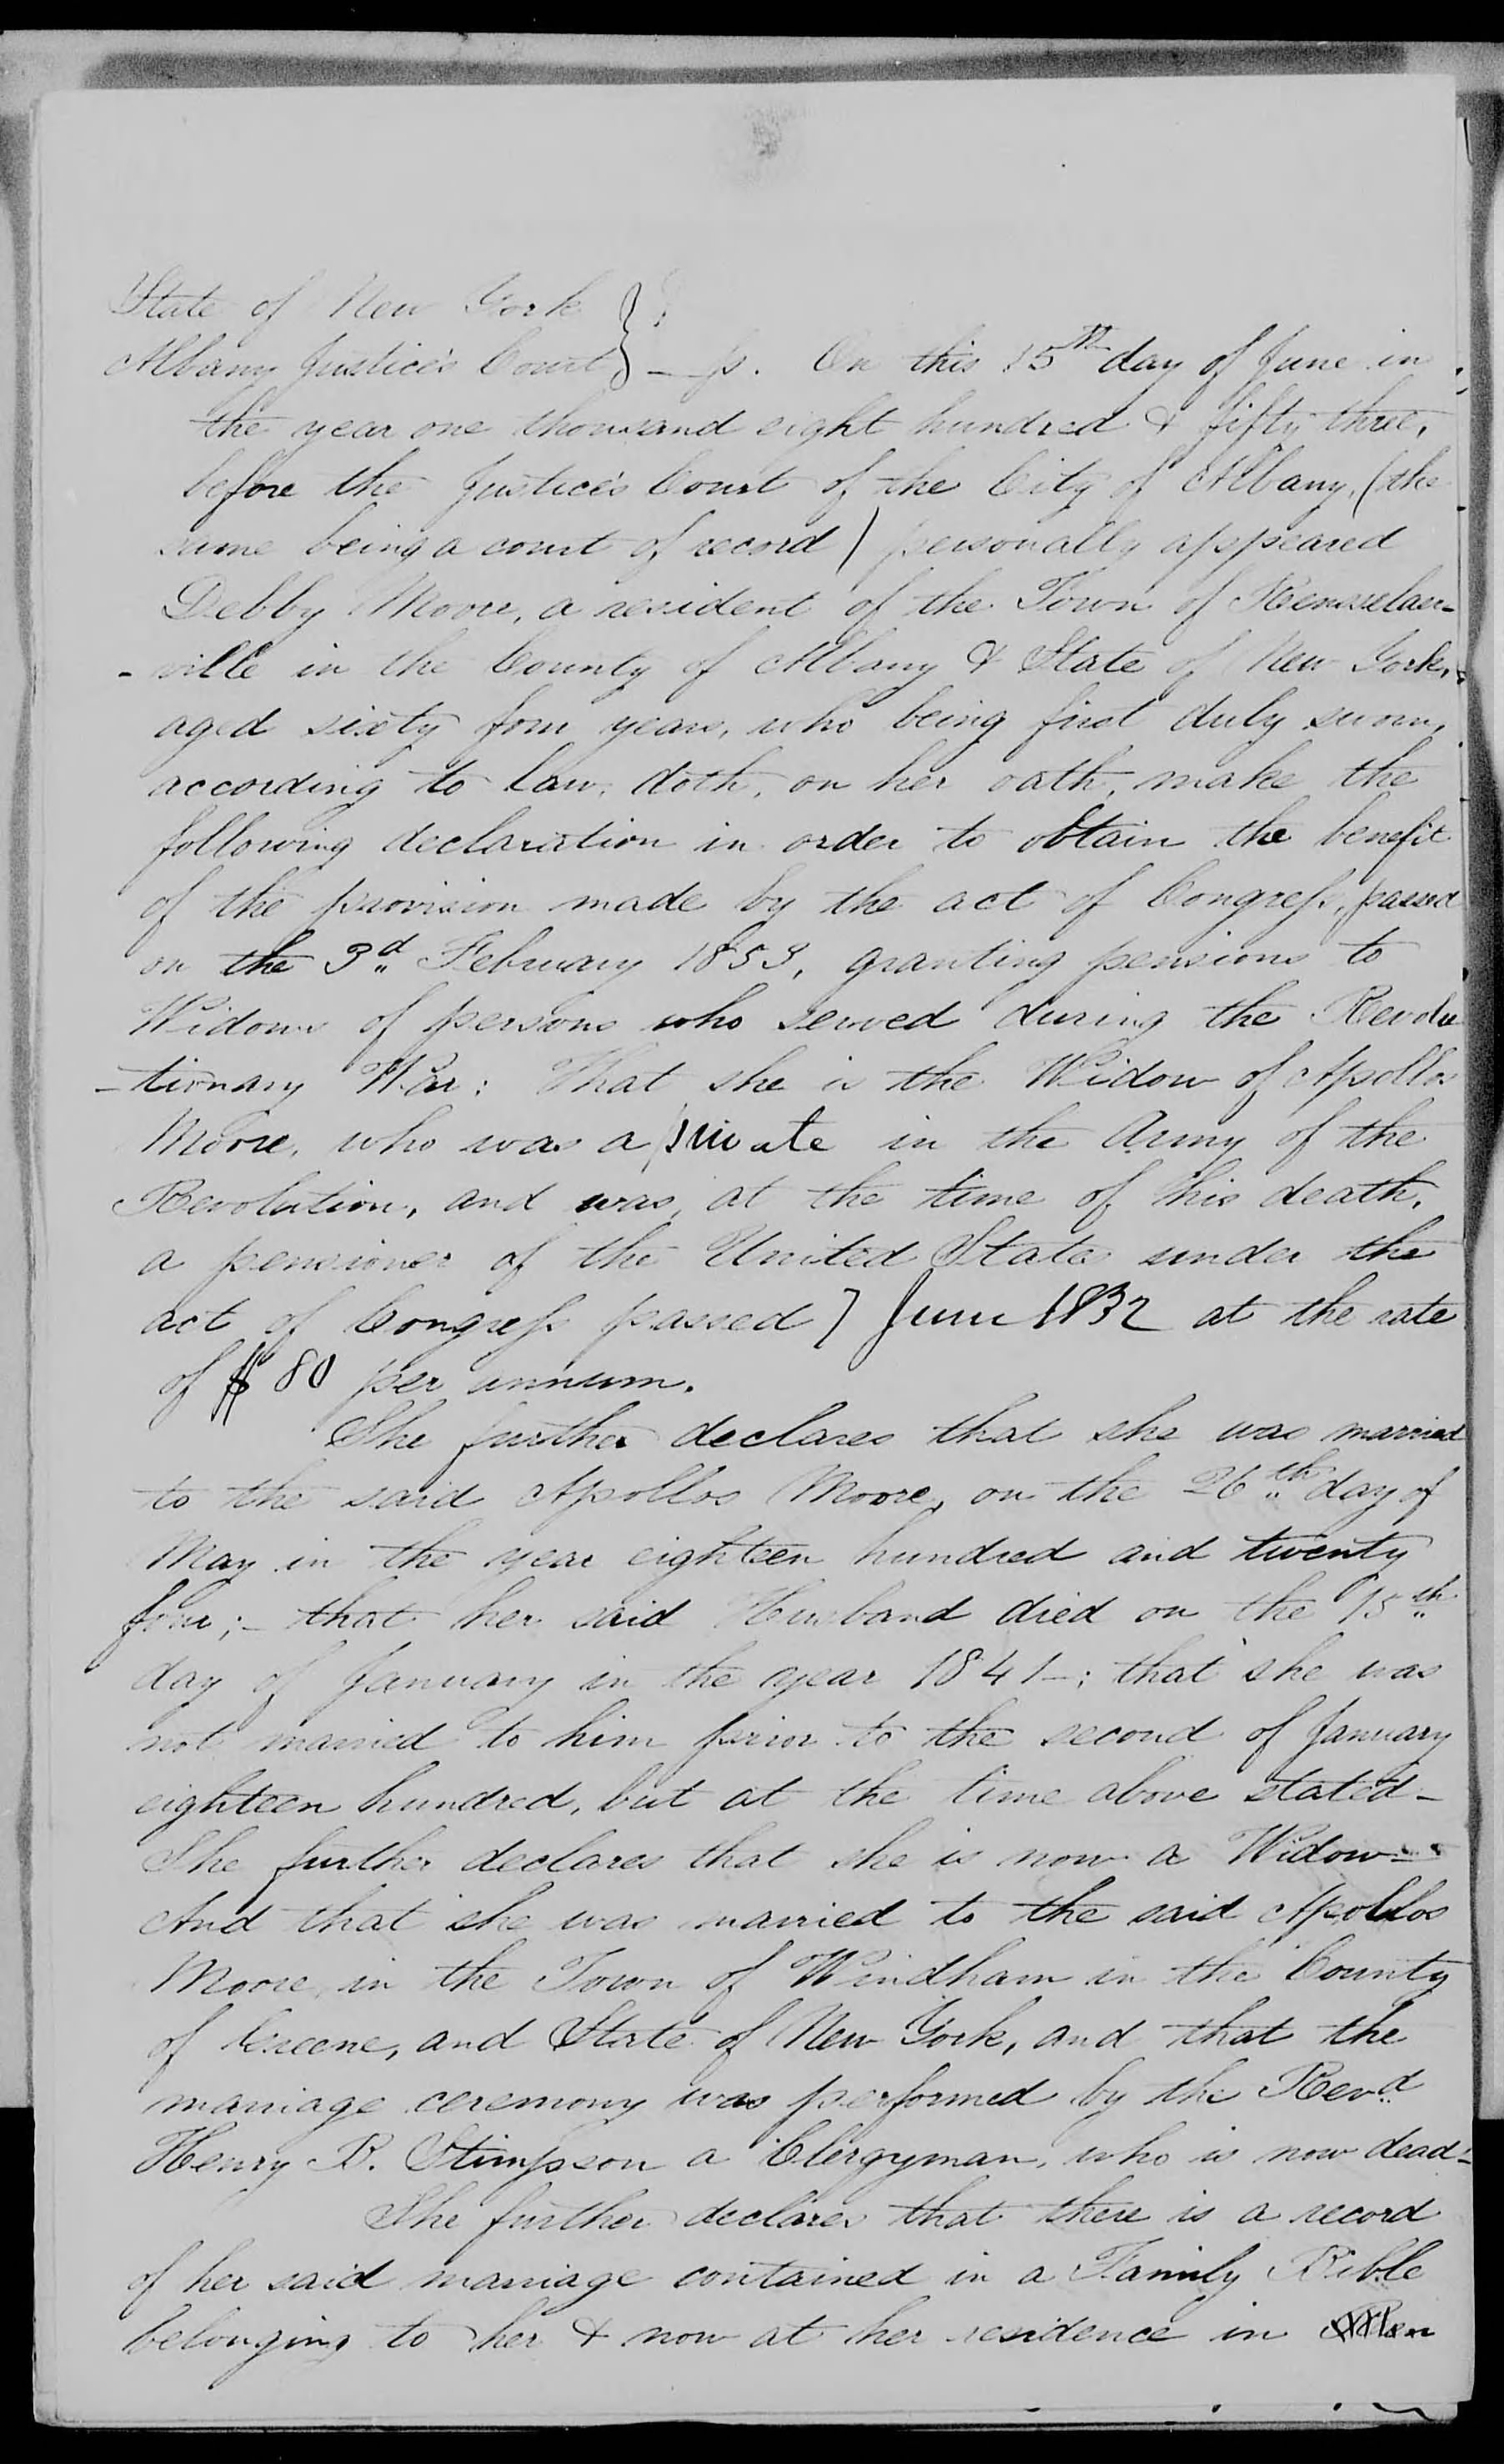 State of New York }
Albany Justice's Court } - ss. On this 15th day of June in
the year one thousand eight hundred & fifty three,
before the Justice's Court of the City of Albany, (the
same being a court of record) personally appeared
Debby Moore, a resident of the Town of Rensselaer-
-ville in the County of Albany & State of New York,
aged sixty four years, who being first duly sworn,
according to law, doth, on her oath, make the
following declaration in order to obtain the benefit
of the provision made by the act of Congress, passed
on the 3d February 1853, granting pensions to
Widows of persons who served during the Revolu
-tionary War: That she is the Widow of Apollos
Moore, who was a private in the Army of the
Revolution, and was, at the time of his death,
a pensioner of the United States under the
act of Congress passed 7 June 1832 at the rate
of $80 per annum.
She further declares that she was married
to the said Apollos Moore, on the 26th day of
May in the year eighteen hundred and twenty
four; - that her said Husband died on the 15th
day of January in the year 1841 -; that she was
not married to him prior to the second of January
eighteen hundred, but at the time above stated -
She further declares that she is now a Widow -
And that she was married to the said Apollos
Moore, in the Town of Windham in the County
of Greene, and State of New York, and that the
marriage ceremony was performed by the Revd
Henry B. Stimpson a Clergyman, who is now dead -
She further declares that there is a record
of her said marriage contained in a Family Bible
belonging to her & now at her residence in